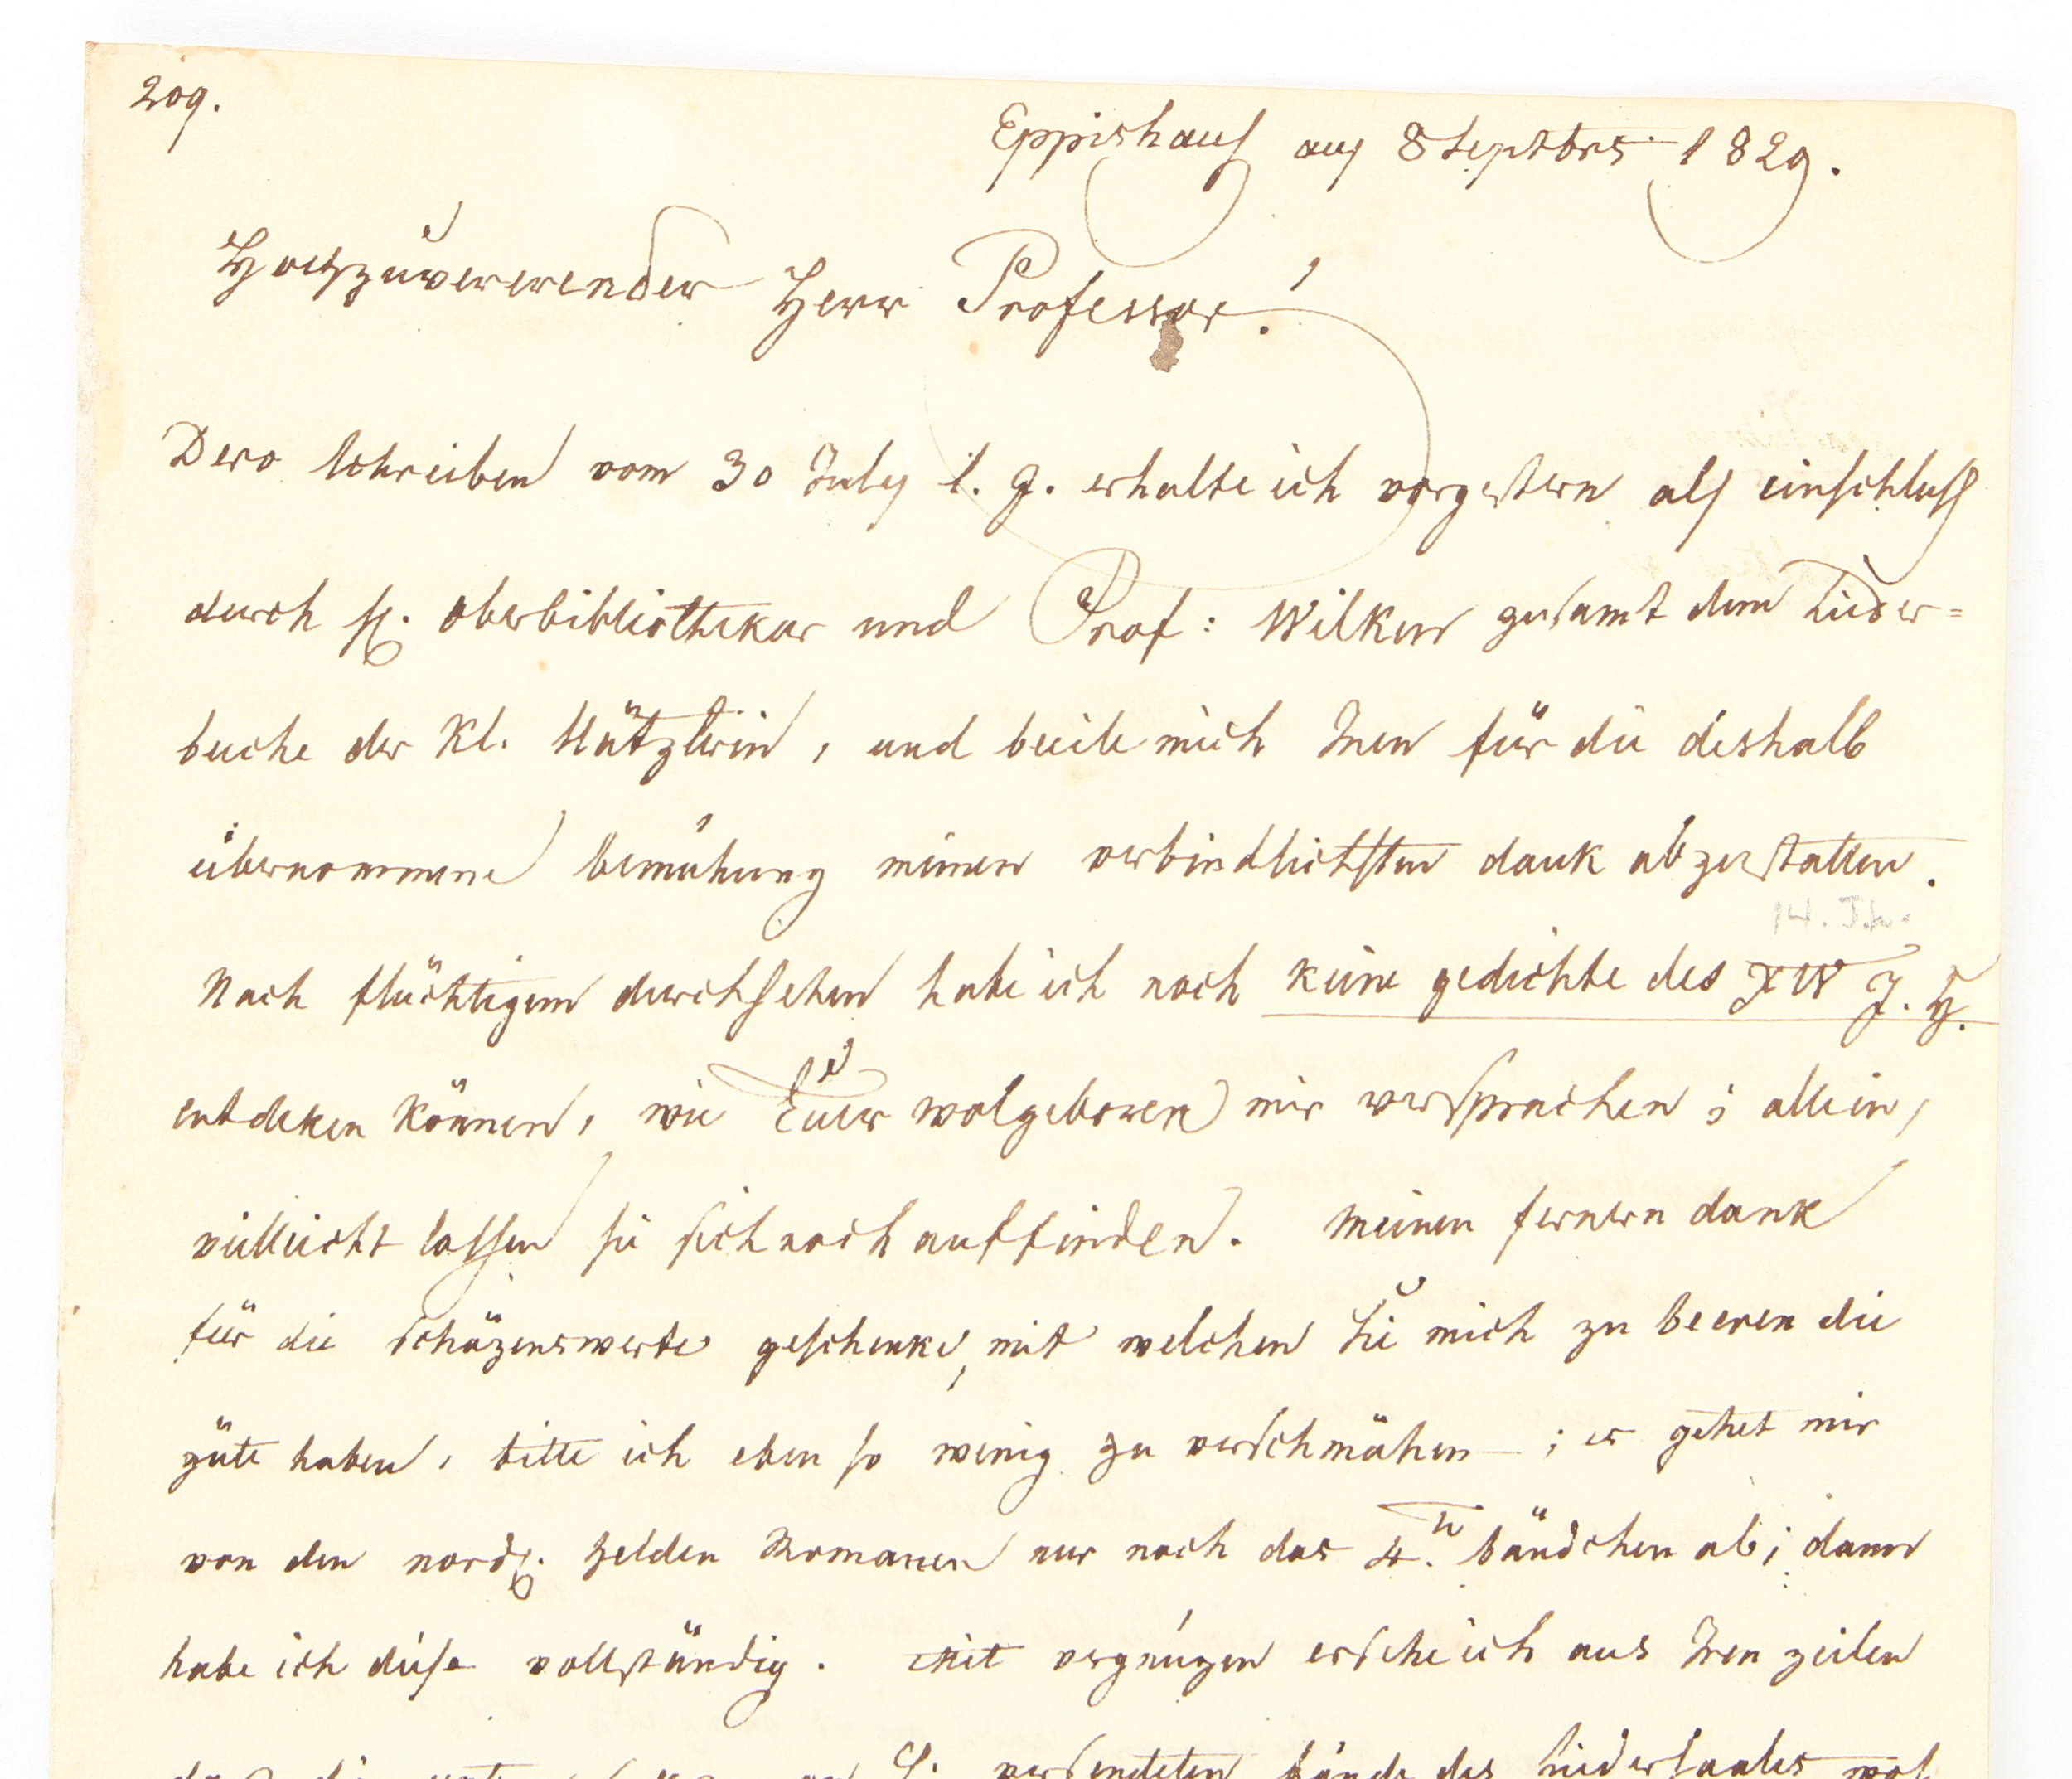 209.
Eppishaus auf 8 Septbrs 1829.
Hochzuvererender Herr Professor!
Dero schreiben vom 30 July l. J. erhalte ich vorgestern als einschluß
durch H. oberbibliothekar und Prof: Wilken gesamt dem Lieder=
buche der Kl. Hätzlerin, und beeile mich Inen für die deshalb
übernommene bemühung meinen verbindlichsten dank abzustatten.
14. Jh.
Nach flüchtigem durchsehen habe ich noch keine gedichte des XIV J. H.
entdeken können, wie Euer wolgeboren mir versprachen; allein,
villeicht lassen sie sich noch auffinden. meinen fernern dank
für die schäzenswerte geschenke, mit welchen Sie mich zu beeren die
güte haben, bitte ich eben so wenig zu verschmähen; es gehet mir
von den nord. Helden Romanen nur noch das 4.te bändchen ab; dann
habe ich diese vollständig. Mit vergnügen ersehe ich aus Iren zeilen
versendeten bände des Liedersaales wol